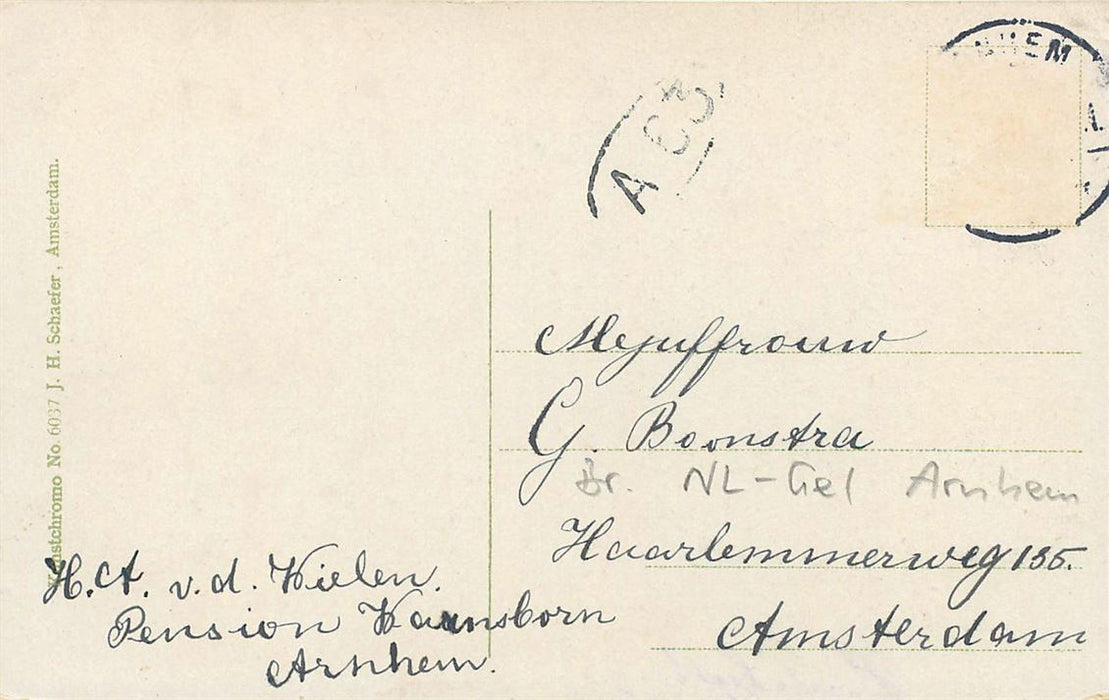 Kunstchromo No. 6037 J. H. Schaefer, Amsterdam.
A 63
HEM
Mejuffrouw
G. Boonstra
Br. NL-Gel Arnhem
Haarlemmerweg 135.
Amsterdam
H.A. v.d. Wielen.
Pension Warnsborn
Arnhem.